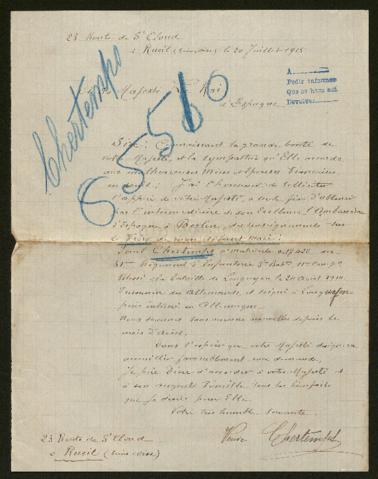 23 Route de St Cloud
à Rueil (Seine-Oise) le 20 Juillet 1915
À
Pedir informes
Que se haga así
Devolver
Chertemps
À Sa Majesté Roi
d'Espagne
Sire, Connaissant la grande bonté de
votre Majesté, et la sympathie qu'Elle accorde
aux malheureuses Mères et Épouses Françaises
J'ai l'honneur de solliciter
l'appui de votre Majesté, à seule fin d'obtenir
par l'intermédiaire de son Excellence l'Ambassadeur
d'Espagne à Berlin, des renseignements sur
le de mon enfant
Paul Chertemps matricule
Régiment d'Infanterie
Blessé à la Bataille de Longuyon le 20 Août 1914
Prisonnier des Allemands, et soigné à Longuyon
puis interné en Allemagne.
Nous sommes sans aucune nouvelle depuis le
mois d'Août.
Dans l'espoir que votre Majesté daignera
accueillir favorablement ma demande,
Je prie Dieu d'accorder à votre Majesté et
à son auguste Famille tous les bienfaits
que je désire pour Elle
Votre très humble servante
23 Route de St Cloud
à Rueil (Seine-Oise)
Veuve Chertemps